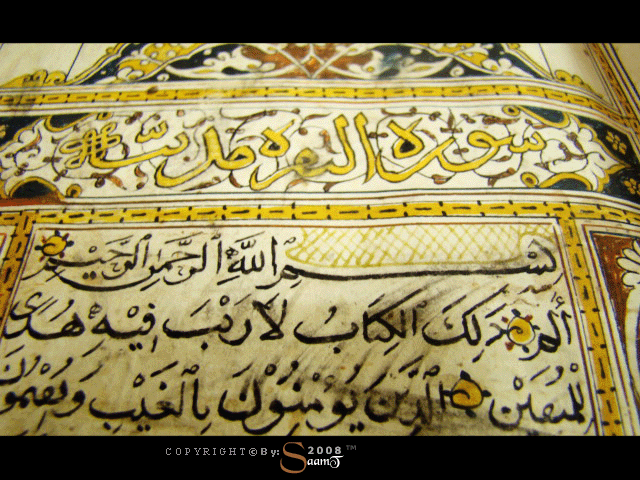 سورة البقرة مدنية
بِسْمِ ٱللَّهِ ٱلرَّحْمَٰنِ ٱلرَّحِيمِ
الٓمٓ ذَٰلِكَ ٱلْكِتَابُ لَا رَيْبَ فِيهِ هُدًى
لِّلْمُتَّقِينَ ٱلَّذِينَ يُؤْمِنُونَ بِٱلْغَيْبِ وَيُقِيمُونَ
COPYRIGHT©By: Saamt 2008™